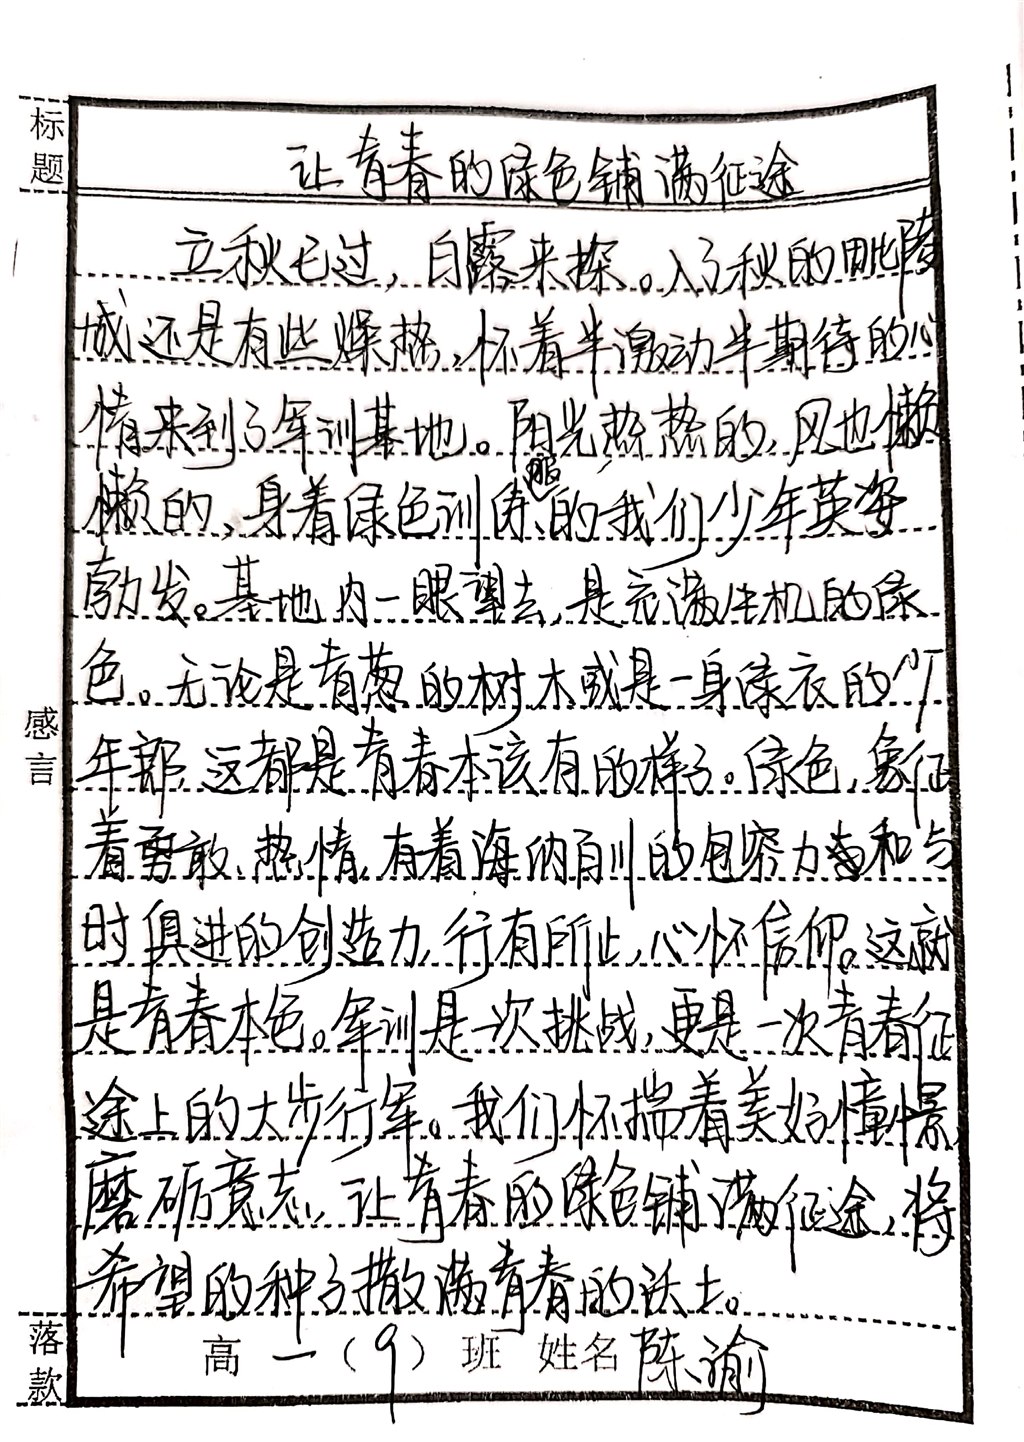 标题
让青春的绿色铺满征途
立秋已过，白露来探。入了秋的毗陵
城还是有些燥热，怀着半激动半期待的心
情来到了军训基地。阳光热热的，风也懒
懒的，身着绿色训练服的我们少年英姿
勃发。基地内一眼望去，是充满生机的绿
色。无论是青葱的树木或是一身绿衣的
年郎，这都是青春本该有的样子。绿色，象征
着勇敢、热情，有着海纳百川的包容力和与
时俱进的创造力，行有所止，心怀信仰。这就
是青春本色。军训是一次挑战，更是一次青春征
途上的大步行军。我们怀揣着美好憧憬，
磨砺意志，让青春的绿色铺满征途，将
希望的种子撒满青春的沃土。
感言
落款
高一（9）班 姓名 陈谕